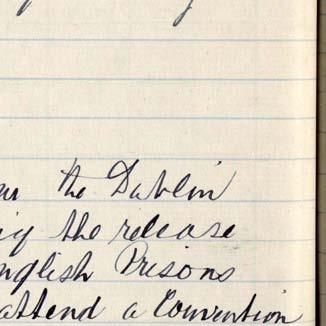 the Dublin
the release
English Prisons
attend a Convention